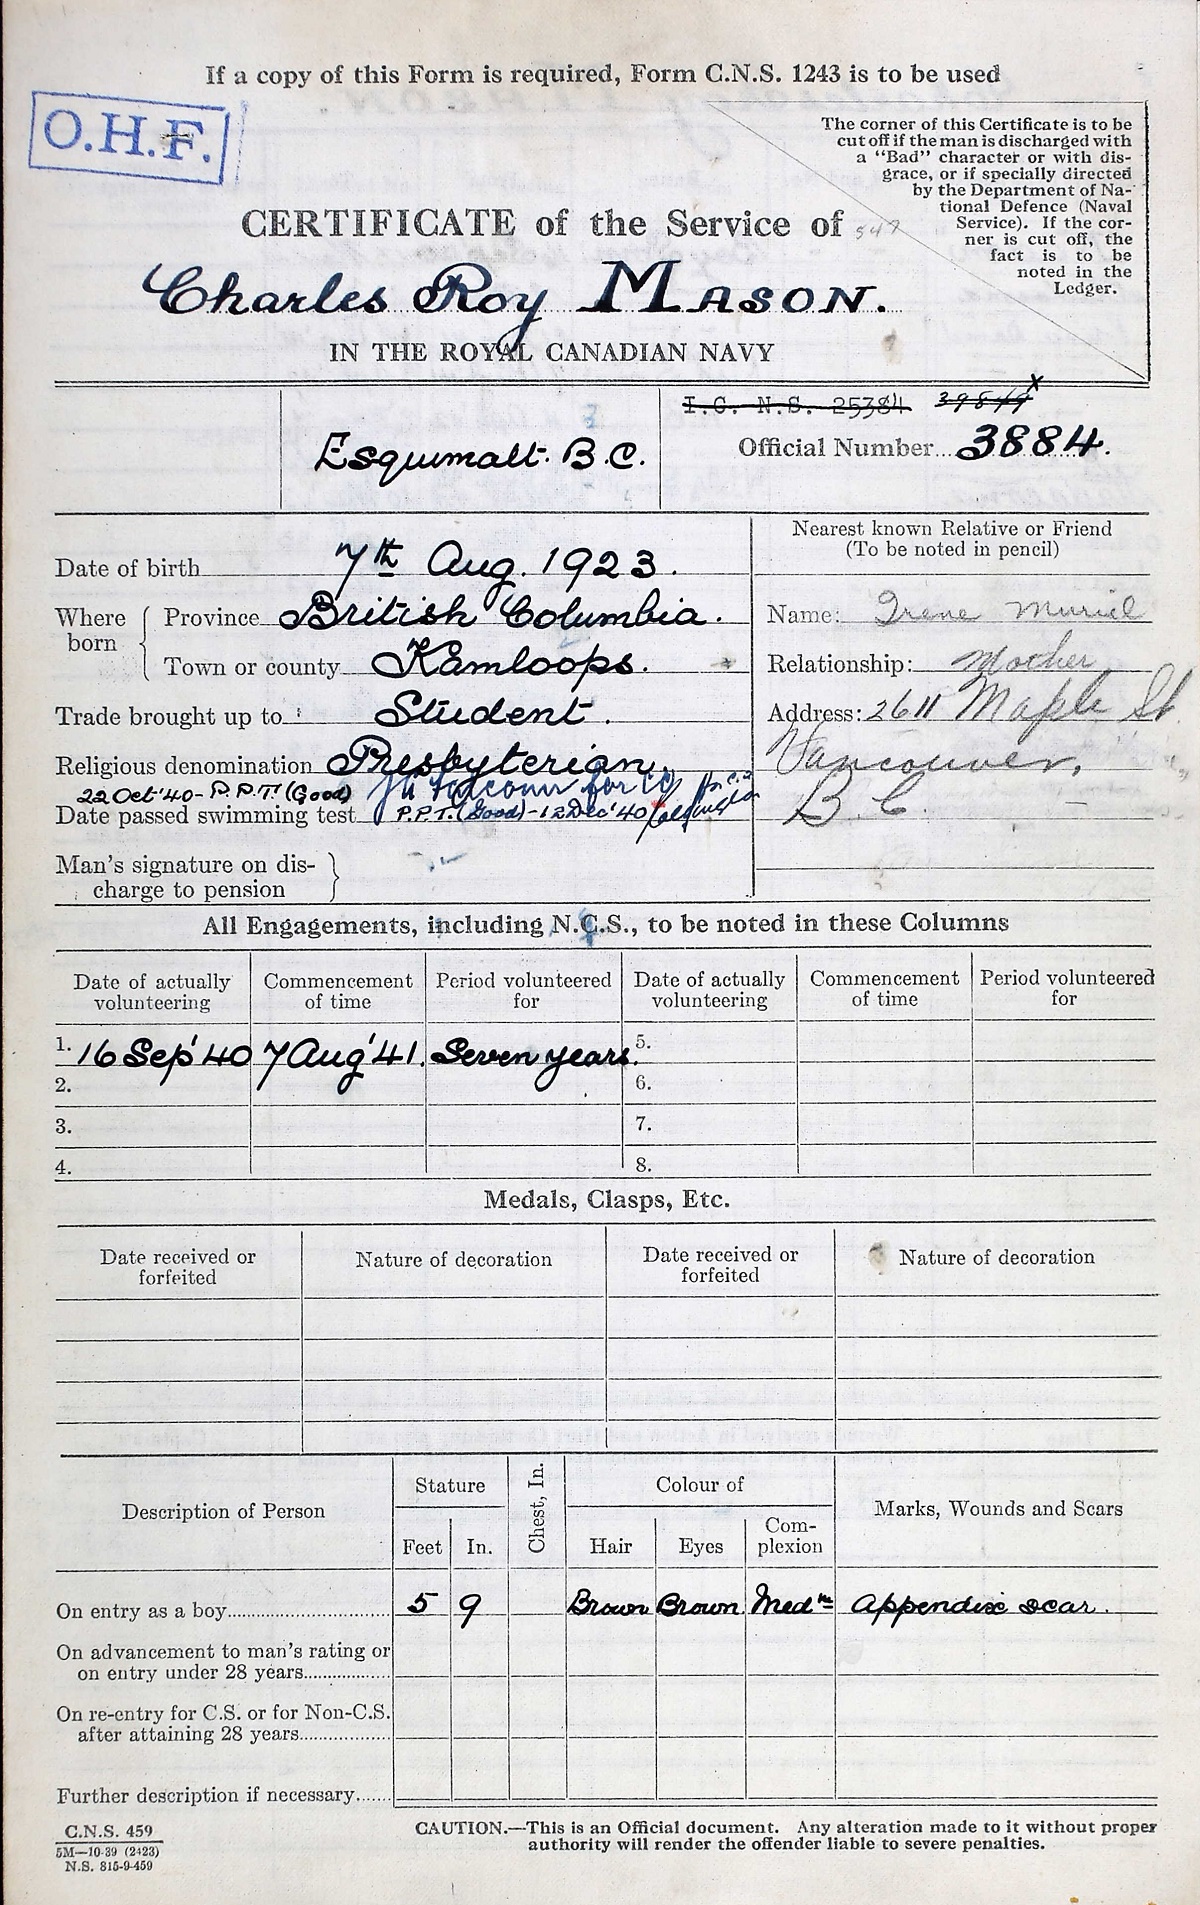 If a copy of this Form is required, Form C.N.S. 1243 is to be used
O.H.F.
The corner of this Certificate is to be
cut off if the man is discharged with
a "Bad" character or with dis-
grace, or if specially directed
by the Department of Na-
tional Defence (Naval
Service). If the cor-
ner is cut off, the
fact is to be
noted in the
Ledger.
CERTIFICATE of the Service of 547
Charles Roy MASON.
IN THE ROYAL CANADIAN NAVY
I.C. N.S. 25384
Esquimalt. B.C.
Official Number 3884.
Nearest known Relative or Friend
(To be noted in pencil)
Date of birth 7th Aug. 1923.
Where born
Province British Columbia.
Town or county Kamloops.
Trade brought up to Student.
Religious denomination Presbyterian.
22 Oct '40 - P.P.T. (Good) for
Date passed swimming test P.P.T. (Good) - 12 Dec '40
Man's signature on dis-
charge to pension
Name: Irene Muriel
Relationship: Mother
Address: 2611 Maple St
Vancouver,
B C
All Engagements, including N.C.S., to be noted in these Columns
Date of actually volunteering Commencement of time Period volunteered for Date of actually volunteering Commencement of time Period volunteered for
1. 16 Sep '40 7 Aug '41. Seven years. 5.
2. 6.
3. 7.
4. 8.
Medals, Clasps, Etc.
Date received or forfeited Nature of decoration Date received or forfeited Nature of decoration
Description of Person Stature Chest, In. Colour of Marks, Wounds and Scars
Feet In. Hair Eyes Com-
plexion
On entry as a boy 5 9 Brown Brown Medm Appendix scar.
On advancement to man's rating or
on entry under 28 years
On re-entry for C.S. or for Non-C.S.
after attaining 28 years
Further description if necessary
C.N.S. 459
5M—10-39 (2423)
N.S. 815-9-459
CAUTION.—This is an Official document. Any alteration made to it without proper
authority will render the offender liable to severe penalties.